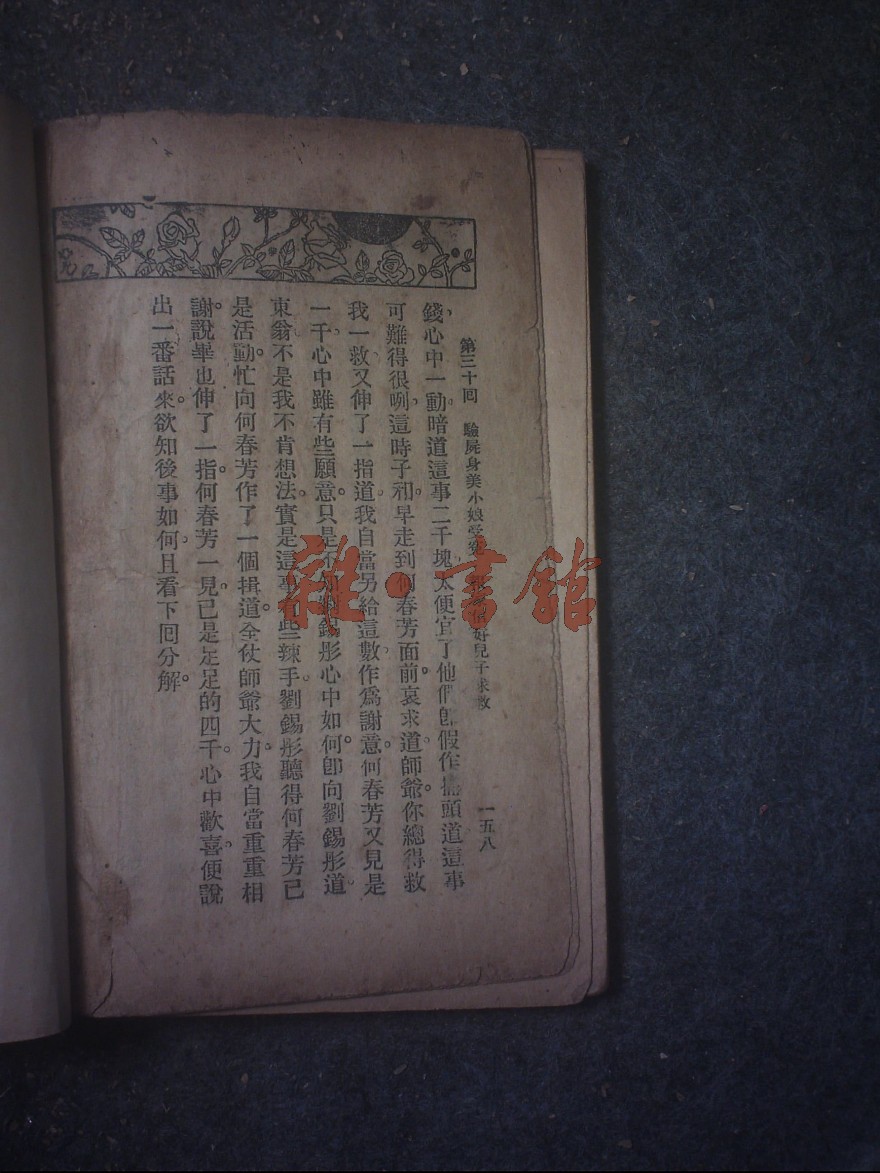 第三十回　驗屍身美小娘受冤　好兒子求救　一五八
錢心中一動。暗道這事二千塊太便宜了他們。卽假作搖頭道這事
可難得很咧。這時子和早走到何春芳面前哀求道師爺。你總得救
我一救。又伸了一指道我自當另給這數作爲謝意。何春芳又見是
一千。心中雖有些願意。只是不知劉錫彤心中如何。卽向劉錫彤道。
東翁不是我不肯想法。實是這事有些辣手。劉錫彤聽得何春芳已
是活動。忙向何春芳作了一個揖道。全仗師爺大力。我自當重重相
謝。說畢也伸了一指。何春芳一見。已是足足的四千。心中歡喜。便說
出一番話來。欲知後事如何。且看下回分解。
雜·書館